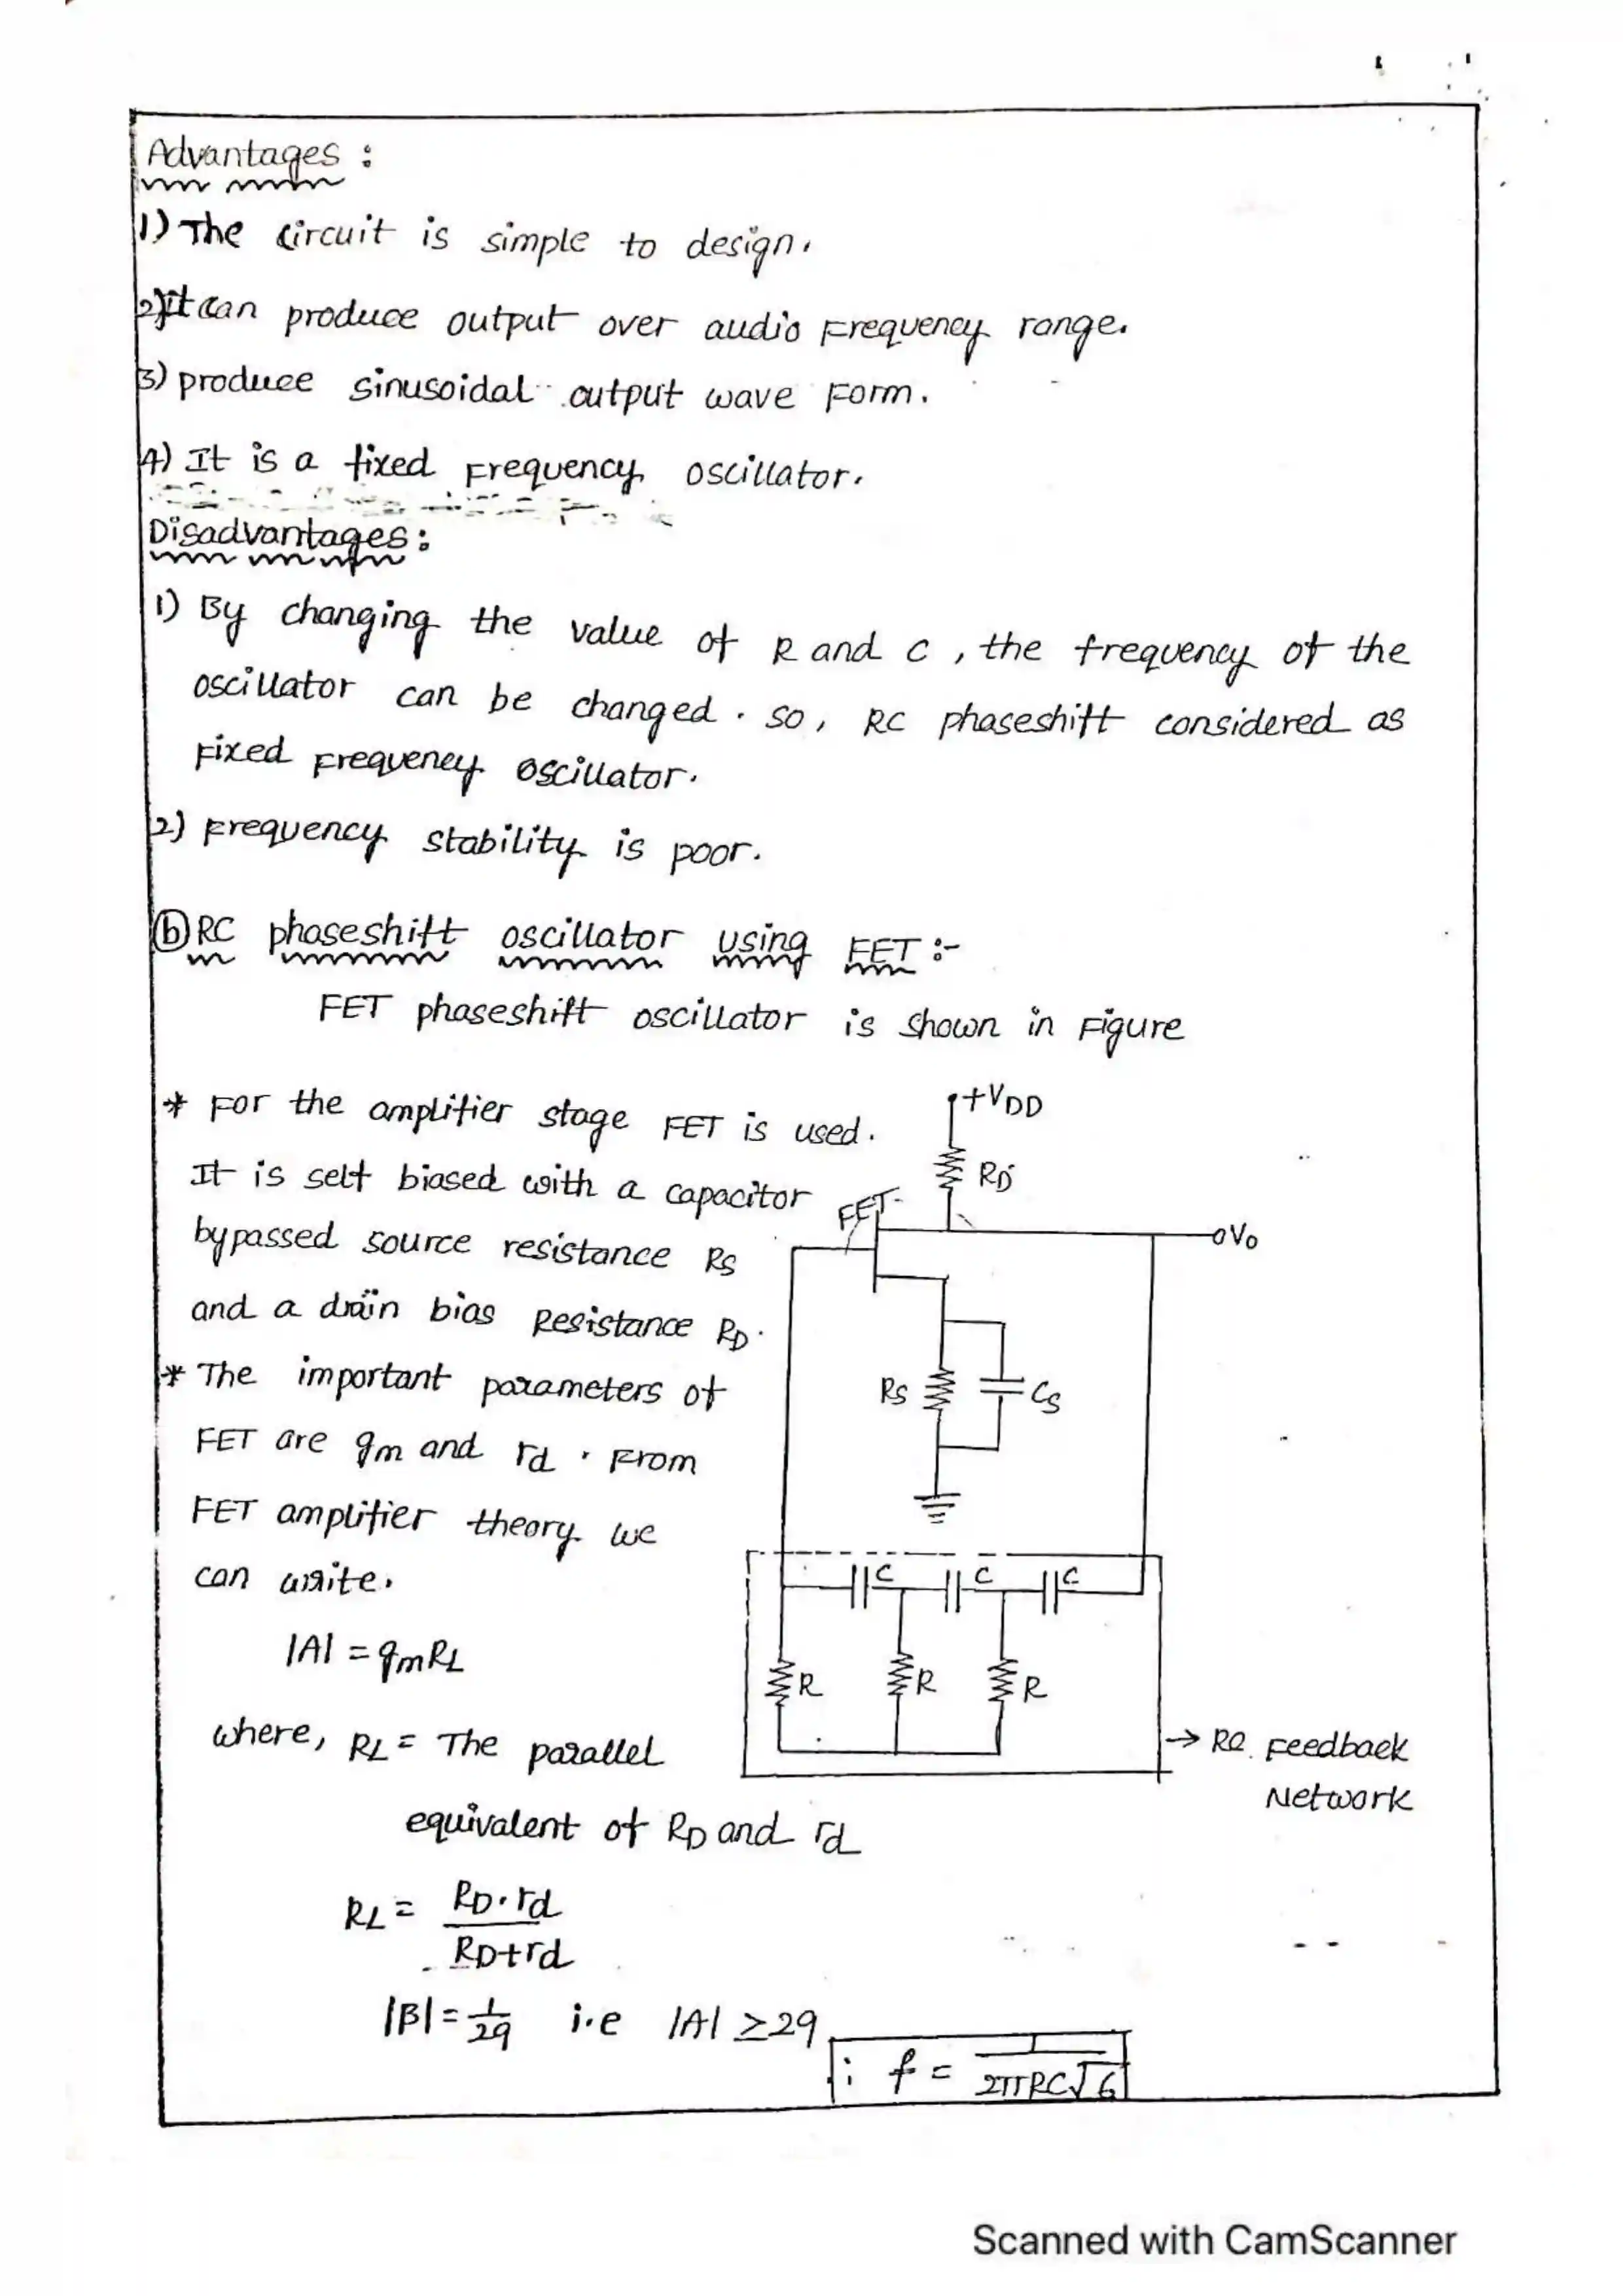 Advantages :
1) The circuit is simple to design.
2) It can produce output over audio Frequency range.
3) produce sinusoidal output wave Form.
4) It is a fixed Frequency oscillator.
Disadvantages :
1) By changing the value of R and C , the frequency of the
oscillator can be changed . so , RC phaseshift considered as
Fixed Frequency oscillator.
2) Frequency stability is poor.
(b) RC phaseshift oscillator using FET :-
FET phaseshift oscillator is shown in Figure
* For the amplifier stage FET is used.
It is self biased with a capacitor
bypassed source resistance RS
and a drain bias Resistance RD.
* The important parameters of
FET are gm and rd . From
FET amplifier theory we
can write.
|A| = gmRL
where, RL = The parallel
equivalent of RD and rd
RL = RD.rd
RD+rd
|β| = 1/29 i.e |A| ≥ 29
: f = 1
2πRC√6
+VDD
RD
FET
Vo
RS
CS
C C C
R R R
→ RC Feedback
Network
Scanned with CamScanner